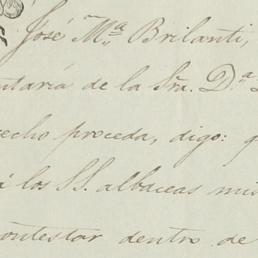 José M.ª Brilanti,
ntaría de la Sra. D.ª
echo proceda, digo: q
á los SS. albaceas mis
contestar dentro de